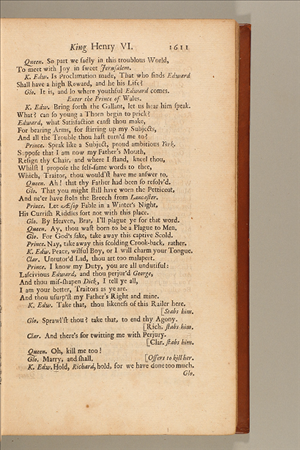 King Henry VI. 1611
Queen. So part we sadly in this troublous World,
To meet with Joy in sweet Jerusalem.
K. Edw. Is Proclamation made, That who finds Edward
Shall have a high Reward, and he his Life?
Glo. It is, and lo where youthful Edward comes.
Enter the Prince of Wales.
K. Edw. Bring forth the Gallant, let us hear him speak.
What? can so young a Thorn begin to prick?
Edward, what Satisfaction canst thou make,
For bearing Arms, for stirring up my Subjects,
And all the Trouble thou hast turn'd me to?
Prince. Speak like a Subject, proud ambitious York,
Suppose that I am now my Father's Mouth,
Resign thy Chair, and where I stand, kneel thou,
Whilst I propose the self-same words to thee,
Which, Traitor, thou would'st have me answer to.
Queen. Ah! that thy Father had been so resolv'd.
Glo. That you might still have worn the Petticoat,
And ne'er have stoln the Breech from Lancaster.
Prince. Let Æsop Fable in a Winter's Night,
His Currish Riddles sort not with this place.
Glo. By Heaven, Brat, I'll plague ye for that word.
Queen. Ay, thou wast born to be a Plague to Men.
Glo. For God's sake, take away this captive Scold.
Prince. Nay, take away this scolding Crook-back, rather.
K. Edw. Peace, wilful Boy, or I will charm your Tongue.
Clar. Untutor'd Lad, thou art too malapert.
Prince. I know my Duty, you are all undutiful:
Lascivious Edward, and thou perjur'd George,
And thou mis-shapen Dick, I tell ye all,
I am your better, Traitors as ye are.
And thou usurp'st my Father's Right and mine.
K. Edw. Take that, thou likeness of this Railer here.
[Stabs him.
Glo. Sprawl'st thou? take that, to end thy Agony.
[Rich. stabs him.
Clar. And there's for twitting me with Perjury.
[Clar. stabs him.
Queen. Oh, kill me too!
Glo. Marry, and shall. [Offers to kill her.
K. Edw. Hold, Richard, hold, for we have done too much.
Glo.